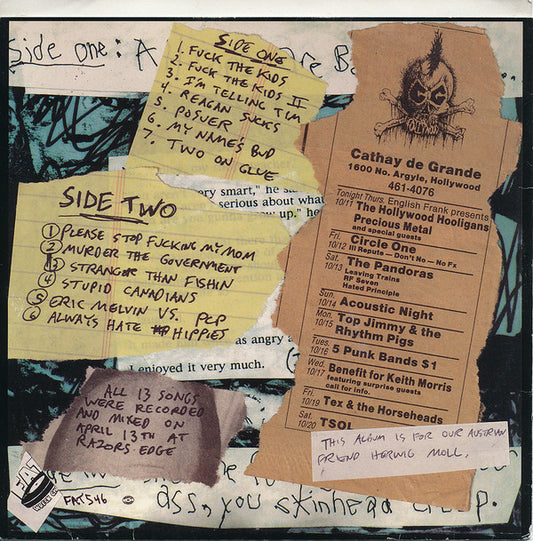 Side one: A
SIDE ONE
1. FUCK THE KIDS
2. FUCK THE KIDS II
3. I'M TELLING TIM
4. REAGAN SUCKS
5. POSUER
6. MY NAMES BUD
7. TWO ON GLUE
Cathay de Grande
1600 No. Argyle, Hollywood
461-4076
Tonight Thurs. English Frank presents
10/11 The Hollywood Hooligans
Precious Metal
and special guests
Fri. Circle One
10/12 Ill Repute — Don't No — No Fx
Sat. The Pandoras
10/13 Leaving Trains
RF Seven
Hated Principle
Sun. Acoustic Night
10/14
Mon. Top Jimmy & the
10/15 Rhythm Pigs
Tues. 5 Punk Bands $1
10/16
Wed. Benefit for Keith Morris
10/17 featuring surprise guests
call for info.
Fri. Tex & the Horseheads
10/19
Sat. TSOL
10/20
ery smart," he s
serious about what
up," he
SIDE TWO
① PLEASE STOP FUCKING MY MOM
② MURDER THE GOVERNMENT
③ STRANGER THAN FISHIN
④ STUPID CANADIANS
⑤ ERIC MELVIN VS. PCP
⑥ ALWAYS HATE HIPPIES
as angry a
I enjoyed it very much.
ALL 13 SONGS
WERE RECORDED
AND MIXED ON
APRIL 13TH AT
RAZORS EDGE
THIS ALBUM IS FOR OUR AUSTRIAN
FRIEND HERWIG MOLL.
FAT546
ass, you skinhead